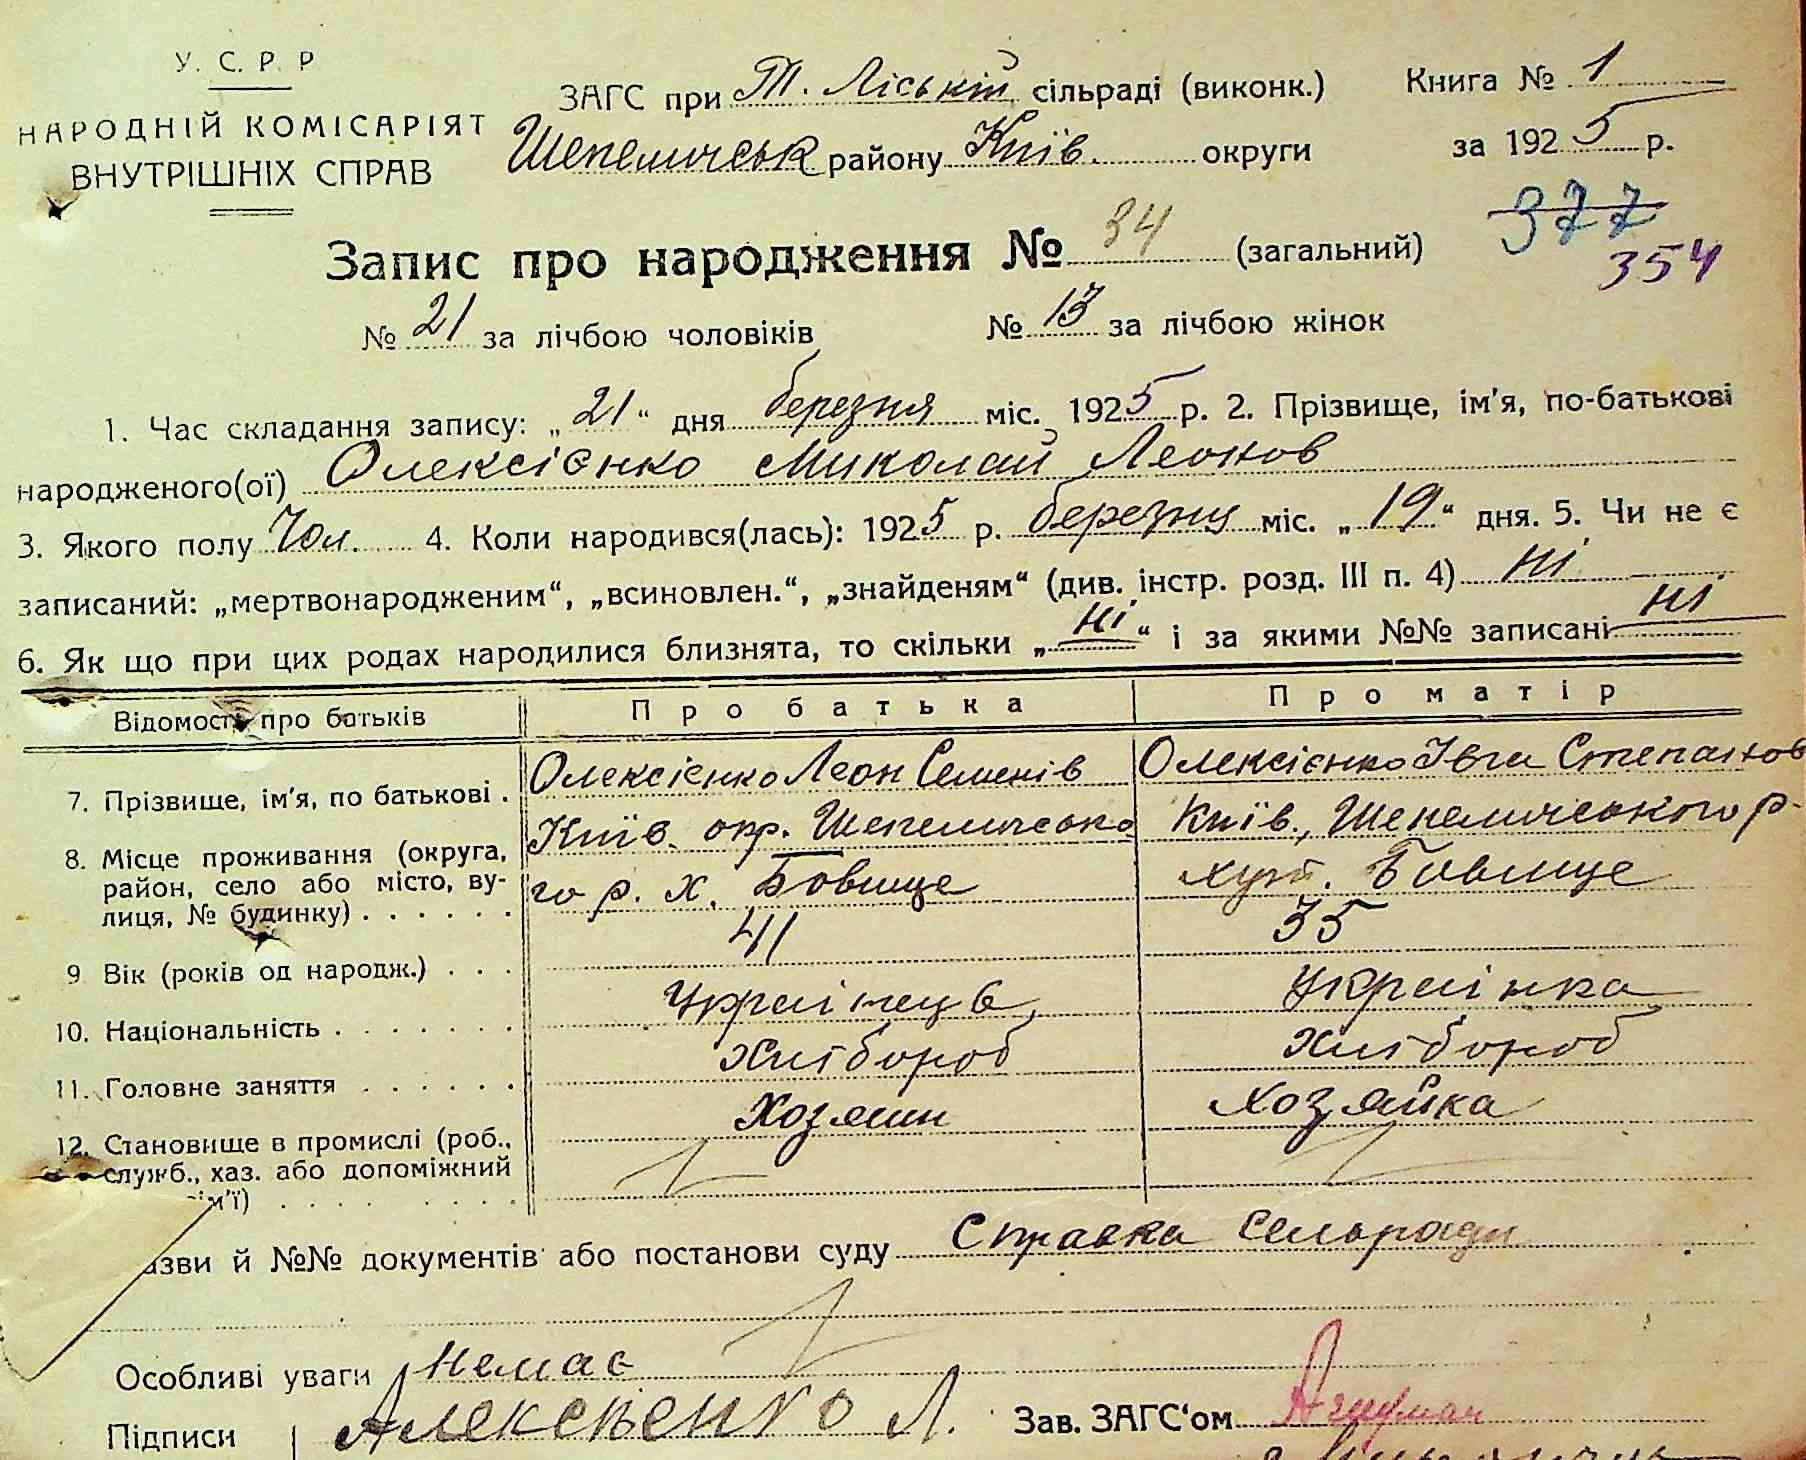 У. С. Р. Р
НАРОДНІЙ КОМІСАРІЯТ
ВНУТРІШНІХ СПРАВ
ЗАГС при Т. Ліській сільраді (виконк.)
Шепелическ району Київ. округи
Книга № 1
за 1925 р.
377
354
Запис про народження № 34 (загальний)
№ 21 за лічбою чоловіків № 13 за лічбою жінок
1. Час складання запису: „21“ дня березня міс. 1925 р. 2. Прізвище, ім'я, по-батькові
народженого(ої) Олексієнко Миколай Леонов
3. Якого полу Чол. 4. Коли народився(лась): 1925 р. березня міс. „19“ дня. 5. Чи не є
записаний: „мертвонародженим“, „всиновлен.“, „знайденям“ (див. інстр. розд. III п. 4) ні
6. Як що при цих родах народилися близнята, то скільки „ні“ і за якими №№ записані ні
Відомость про батьків Про батька Про матір
7. Прізвище, ім'я, по батькові . Олексієнко Леон Семенів Олексієнко Івга Степанов
8. Місце проживання (округа, район, село або місто, вулиця, № будинку) . . . . . .
Київ. окр. Шепелическо Київ., Шепелического р.
го р. х. Бовище хут. Бовище
9. Вік (років од народж.) . . . 41 35
10. Національність . . . . . . . Українець Українка
11. Головне заняття . . . . . . Хлібороб Хлібороб
12. Становище в промислі (роб., Хозяин Хозяйка
служб., хаз. або допоміжний
ім'ї) . . . . . . . . .
азви й №№ документів або постанови суду Справка Сельради
Особливі уваги немає
Підписи Алексеенко Л. Зав. ЗАГС‘ом